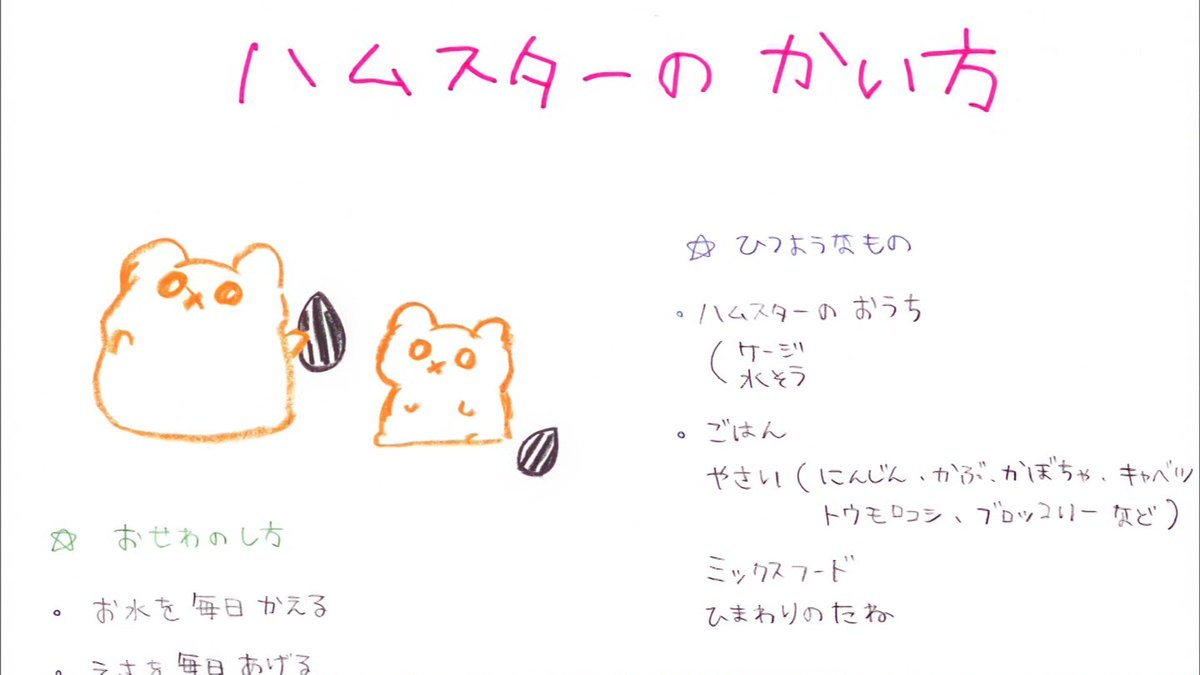 ハムスターの かい方
☆ ひつようなもの
・ハムスターの おうち
(ケージ
水そう
・ごはん
やさい(にんじん、かぶ、かぼちゃ、キャベツ
トウモロコシ、ブロッコリーなど)
ミックスフード
ひまわりのたね
☆ おせわのし方
・お水を毎日かえる
・えさを毎日あげる